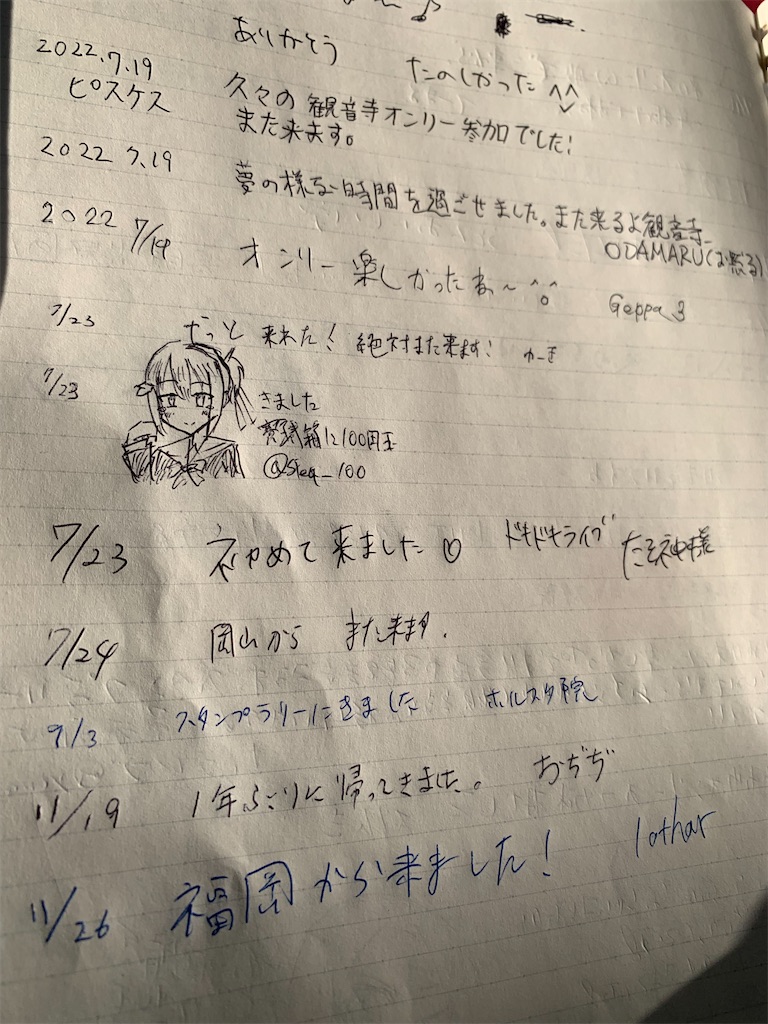 ありがとう
たのしかった ^^
2022.7.19
ピスケス
久々の観音寺オンリー参加でした!
また来ます。
2022 7.19
夢の様な時間を過ごせました。また来るよ観音寺
ODAMARU
2022 7/19
オンリー楽しかったねぇ~
Geppa 3
7/23
やっと来れた! 絶対また来ます!
7/23
きました
賽銭箱に100円玉
7/23 初めて来ました♡ ドキドキライブ
7/24 岡山から また来ます.
9/3 スタンプラリーにきました ホルスタ院
11/19 1年ぶりに帰ってきました。 おぢぢ
11/26 福岡から来ました! lothar